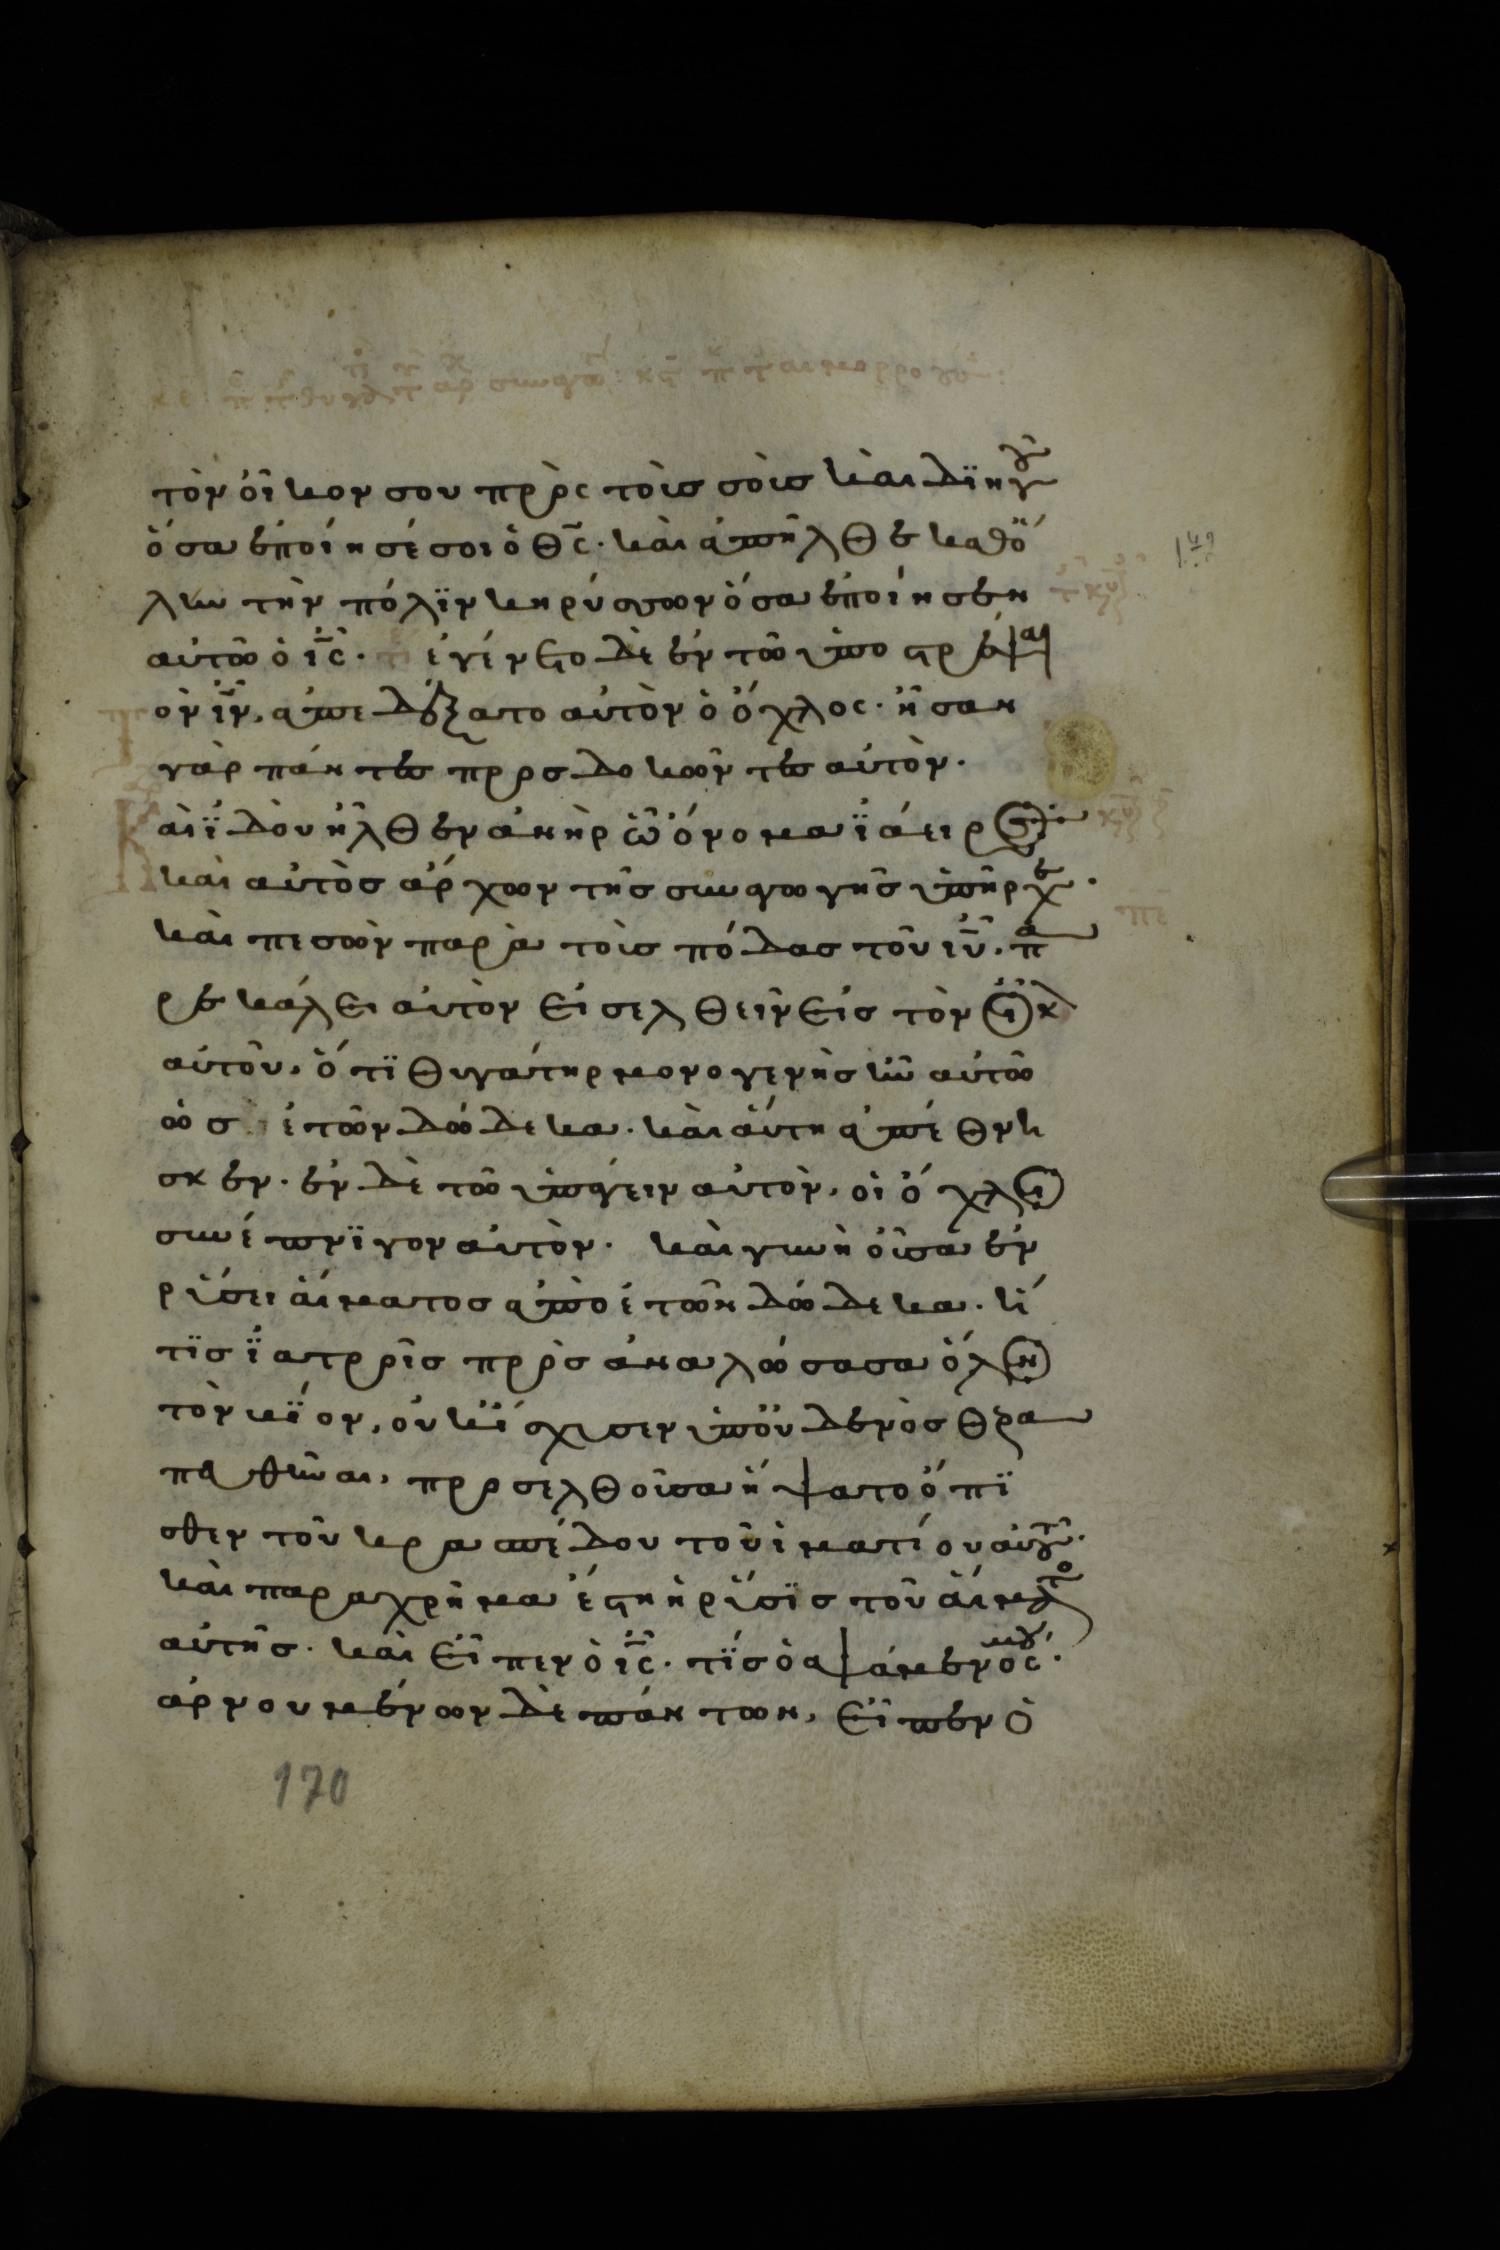 τὸν οἶκον σου πρὸς τοὺς σοὺς καὶ διηγοῦ
ὅσα ἐποίησέ σοι ὁ θ̅ς̅· καὶ ἀπῆλθε καθ' ὅ
λην τὴν πόλϊν κηρύσσων ὅσα ἐποίησεν
αὐτῶ ὁ ι̅ς̅· ἐγένετο δὲ ἐν τῶ ὑποστρέψαι
ὸν ι̅ν̅, ἀπεδέξατο αὐτὸν ὁ ὄχλος· ἦσαν
γὰρ πάντες προσδοκῶντες αὐτὸν·
αὶ ἰ̈δοὺ ἦλθεν ἀνὴρ ὧ ὄνομα ϊάειρος
καὶ αὐτὸσ ἄρχων τῆσ συναγωγῆσ ὑπῆρχε·
καὶ πεσὼν παρὰ τοὺσ πόδασ τοῦ ι̅υ̅· πα
ρεκάλει αὐτὸν εἰσελθεῖν εἰσ τὸν οἶκ
αὐτοῦ, ὅτϊ θυγάτηρ μονογενὴσ ἦν αὐτῶ
ὡσ ἐτῶν δώδεκα· καὶ αὕτη ἀπέθνη
σκεν· ἐν δὲ τῶ ὑπάγειν αὐτὸν, οἱ ὄχλοι
συνέπνϊγον αὐτὸν· καὶ γυνὴ οὖσα ἐν
ρύσει αἵματοσ ἀπὸ ἐτῶν δώδεκα· ἥ
τϊσ ἰ̈ατροῖσ προσαναλώσασα ὅλον
τὸν βίον, οὐκ ἴσχυσεν ὑπ' οὐδενὸσ θερα
πευθῆναι, προσελθοῦσα ἥψατο ὄπϊ
σθεν τοῦ κρασπέδου τοῦ ἱματίου αὐτοῦ·
καὶ παραχρῆμα ἔστη ἡ ρύσϊσ τοῦ αἵματο
αὐτῆσ· καὶ εἶπεν ὁ ι̅ς̅· τίσ ὁ ἁψάμενός μου·
ἀρνουμένων δὲ πάντων, εἶπεν ὁ
170